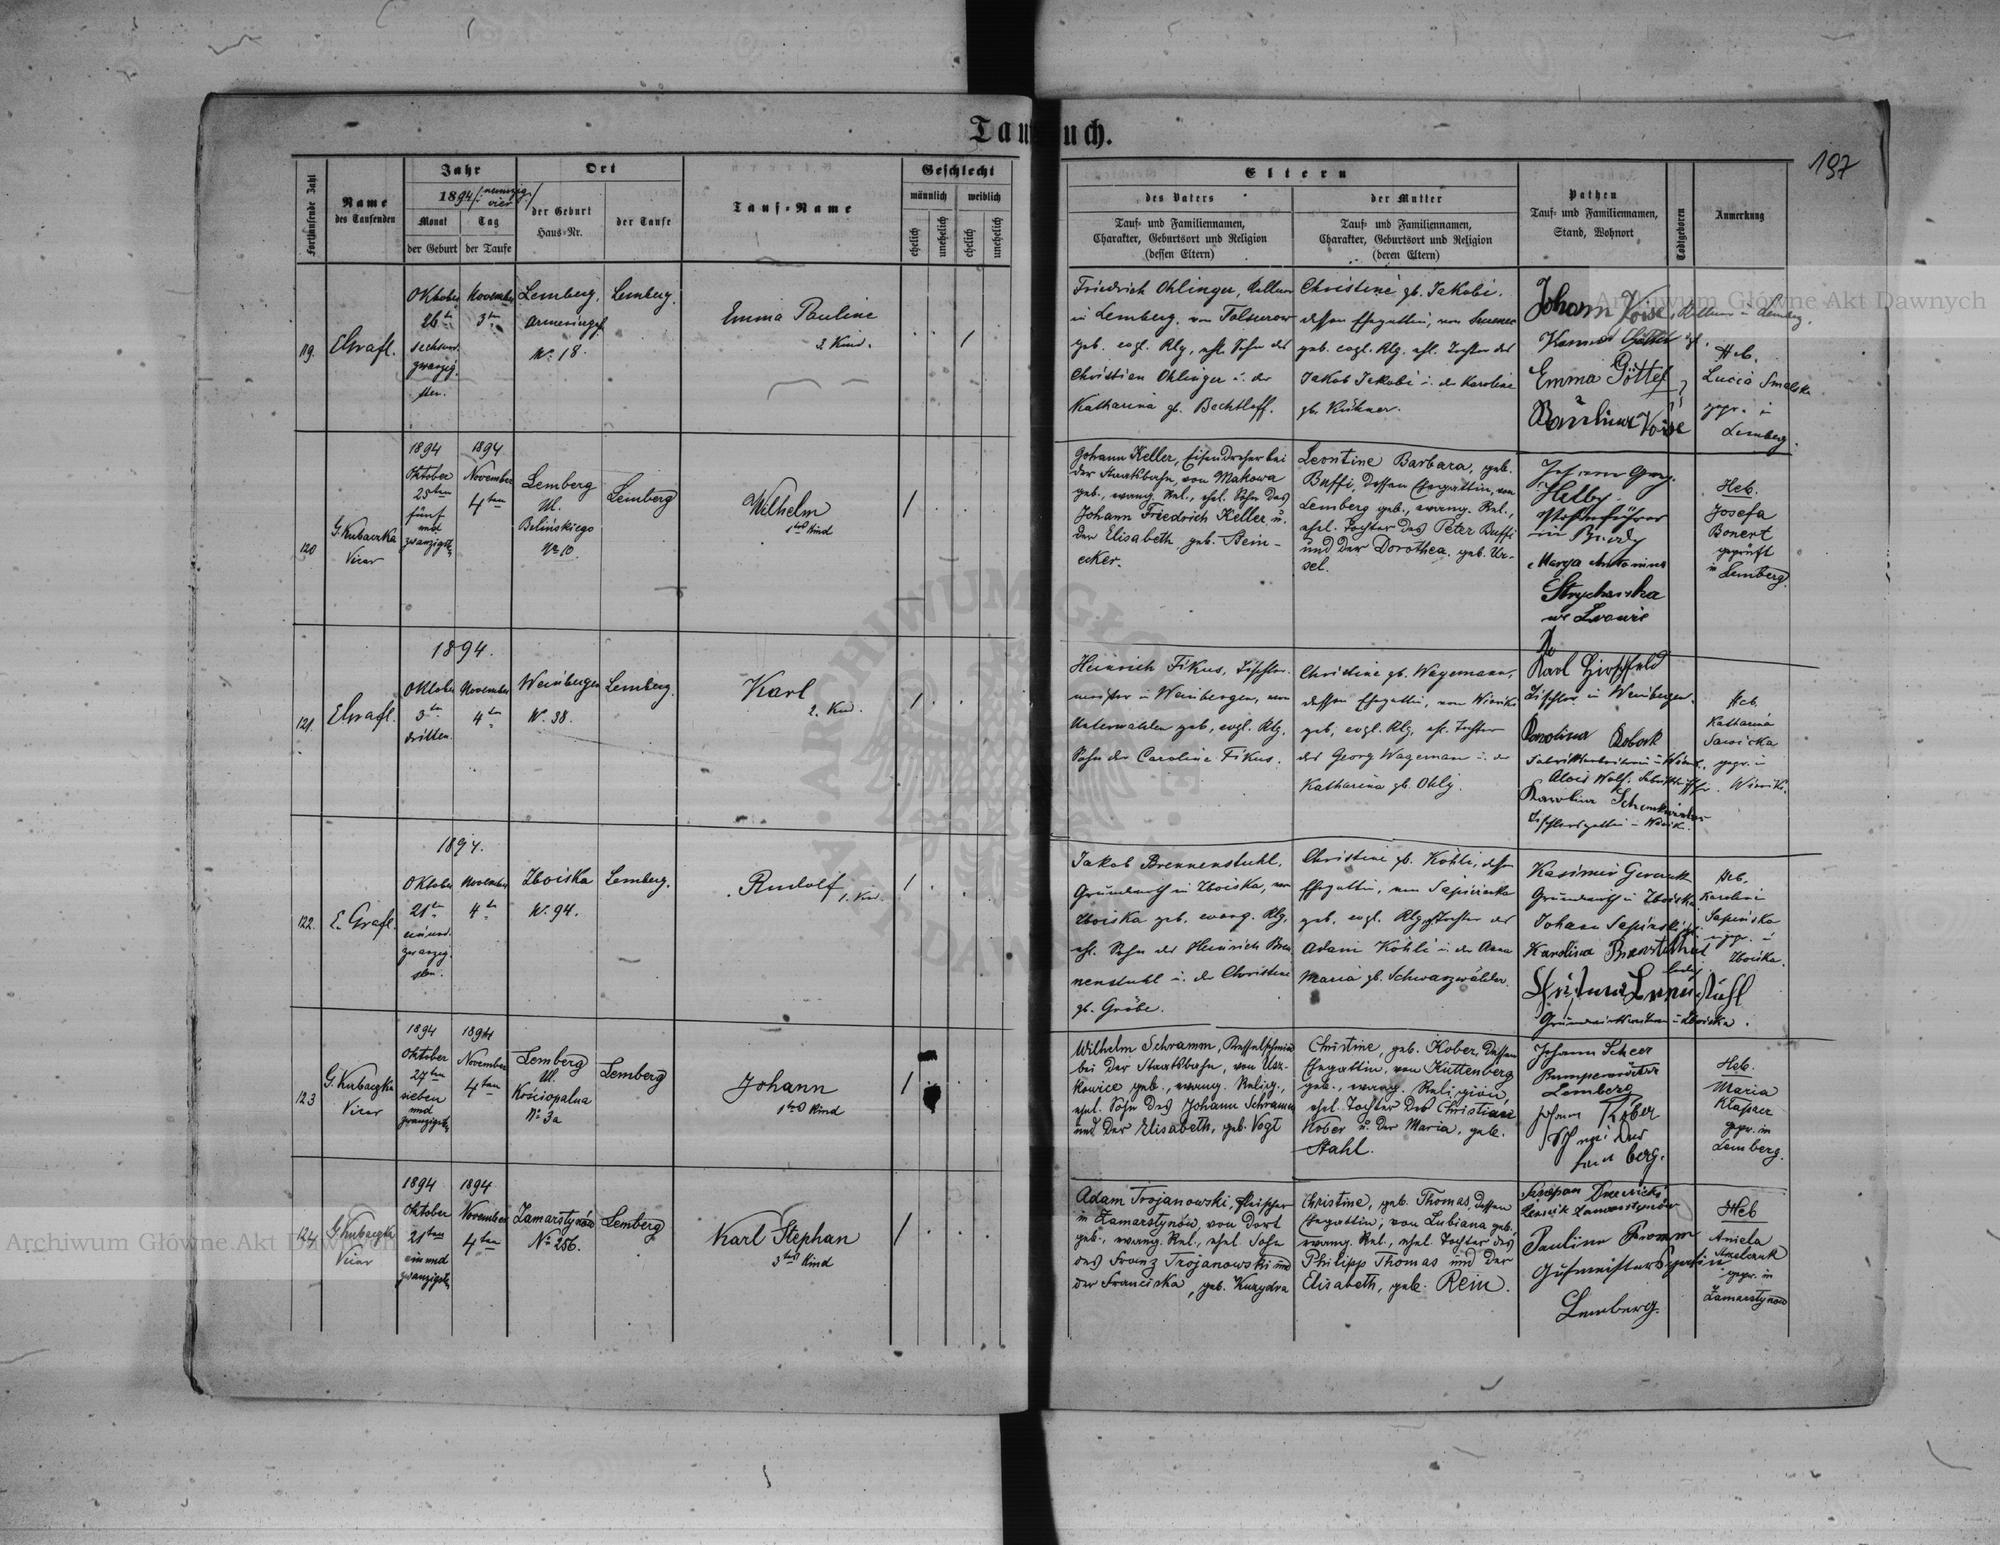 Taufbuch.
197
Fortlaufende Zahl
Name
des Taufenden
Jahr
1894/: neunzig vier :/
Monat
der Geburt
Tag
der Taufe
Ort
der Geburt
Haus-Nr.
der Taufe
Tauf-Name
Geschlecht
männlich
weiblich
ehelich
unehelich
ehelich
unehelich
Eltern
des Vaters
Tauf- und Familiennamen,
Charakter, Geburtsort und Religion
(dessen Eltern)
der Mutter
Tauf- und Familiennamen,
Charakter, Geburtsort und Religion
(deren Eltern)
Pathen
Tauf- und Familiennamen,
Stand, Wohnort
Todtgeboren
Anmerkung
119.
EGrafl.
Oktober
26ten
sechsund
zwanzig
sten.
November
3ten
Lemberg,
No. 18.
Lemberg.
Emma Pauline
2. Kind.
1
Friedrich Ohlinger, Kellner
in Lemberg, von
geb. evgl. Rlg., ehl. Sohn des
Christian Ohlinger u. der
Katharina gb. Bechtloff.
Christine gb. Jakobi,
dessen Ehegattin, von
geb. evgl. Rlg. ehl. Tochter des
Jakob Jakobi u. der Karoline
gb. Kühner.
Johann Voise, Kellner in Lemberg,
Konrad Göttel
Emma Göttel
Pauline Voise
Heb.
Lucia Smalska
gepr. in
Lemberg.
120
G. Kubaczka
Vicar
1894
Oktober
25ten
fünf
und
zwanzigsten
1894
November
4ten
Lemberg
Ul.
Belińskiego
No 10.
Lemberg
Wilhelm
1tes Kind
1
Johann Keller, Eisendreher bei
der Staatsbahn, von Makowa
geb., evang. Rel., ehel. Sohn des
Johann Friedrich Keller u.
der Elisabeth geb. Bein-
ecker.
Leontine Barbara, geb.
Buffi, dessen Ehegattin, von
Lemberg geb., evang. Rel.,
ehel. Tochter des Peter Buffi
und der Dorothea geb. Ur-
sel.
Johann Georg
in Brody
Marya Antonina
Strycharska
we Lwowie
Heb.
Josefa
Bonert
geprüft
in Lemberg.
121.
EGrafl.
1894.
Oktober
3ten
dritten
November
4ten
Weinbergen
No. 38.
Lemberg.
Karl
2. Kind.
1
Heinrich Fikus, Tischler-
meister in Weinbergen, von
Unterwalden geb., evgl. Rlg.
Sohn der Caroline Fikus.
Christine gb. Wagemann,
dessen Ehegattin, von Winniki
geb., evgl. Rlg., ehl. Tochter
des Georg Wagemann u. der
Katharina gb. Ohly.
Karl Hirschfeld
Tischler in Weinbergen.
Karolina
Alois Wolf,
Karolina
Heb.
Katharina
Sawicka
gepr. in
Winniki.
122.
E. Grafl.
1894.
Oktober
21ten
einund
zwanzig
sten.
November
4ten
Zboiska
No. 94.
Lemberg.
Rudolf
1. Kind.
1
Jakob Brennenstuhl,
Grundwirth in Zboiska, von
Zboiska geb., evang. Rlg.
ehl. Sohn des Heinrich Bren
nenstuhl u. der Christine
gb. Gröbe.
Christine gb. Köhli, dessen
Ehegattin, von
geb., evgl. Rlg., Tochter des
Adam Köhli u. der Anna
Maria gb. Schwarzwälder.
Kasimir
Grundwirth in Zboiska
Johann Sapinski
Karolina
Grundwirthin in Zboiska.
Heb.
Karolina
Sapinska
ungepr. in
Zboiska.
123
G. Kubaczka
Vicar
1894
Oktober
27ten
sieben
und
zwanzigsten
1894
November
4ten
Lemberg
Ul.
Kościopalna
No 3a
Lemberg
Johann
1tes Kind
1
Wilhelm Schramm, Kesselschmied
bei der Staatsbahn, von Usz-
kowice geb., evang. Relig.,
ehel. Sohn des Johann Schramm
und der Elisabeth, geb. Vogt
Christine, geb. Kober, dessen
Ehegattin, von Kuttenberg
geb., evang. Religion,
ehel. Tochter des Christian
Kober u. der Maria, geb.
Stahl.
Johann Scheer
Lemberg
Johann Kober
Schneider
Lemberg.
Heb.
Maria
Klapper
gepr. in
Lemberg.
124
G. Kubaczka
Vicar
1894
Oktober
21ten
einund
zwanzigsten
1894
November
4ten
Zamarstynów
No 256.
Lemberg
Karl Stephan
3tes Kind
1
Adam Trojanowski, Fleischer
in Zamarstynów, von dort
geb., evang. Rel., ehel. Sohn
des Franz Trojanowski und
der Franciska, geb. Kuzydra
Christine, geb. Thomas, dessen
Ehegattin, von Lubiana geb.,
evang. Rel., ehel. Tochter des
Philipp Thomas und der
Elisabeth, geb. Rein.
Zamarstynów
Pauline Fromm
Lemberg.
Heb
Aniela
gepr. in
Zamarstynów
Archiwum Główne Akt Dawnych
Archiwum Główne Akt Dawnych